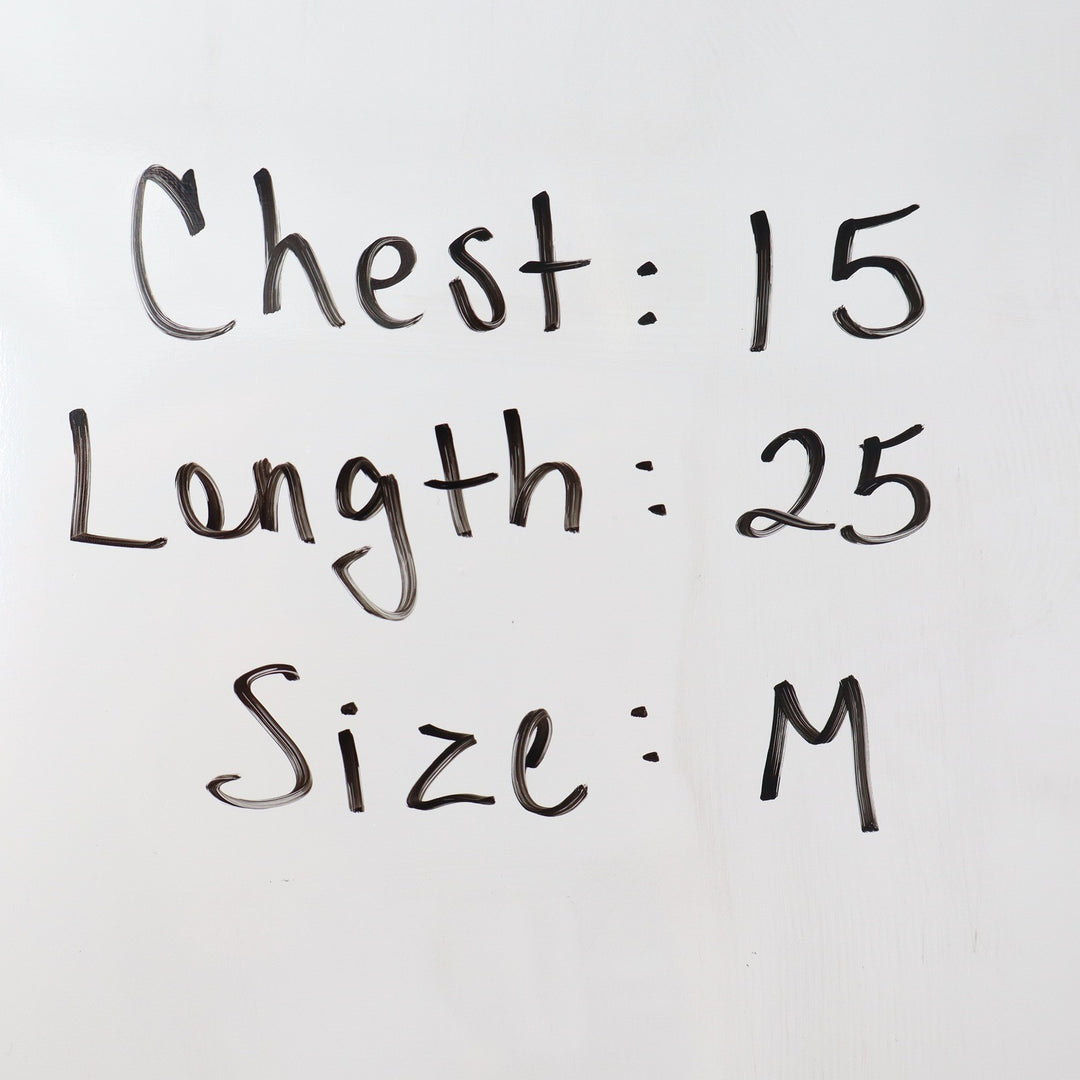 Chest: 15
Length: 25
Size: M